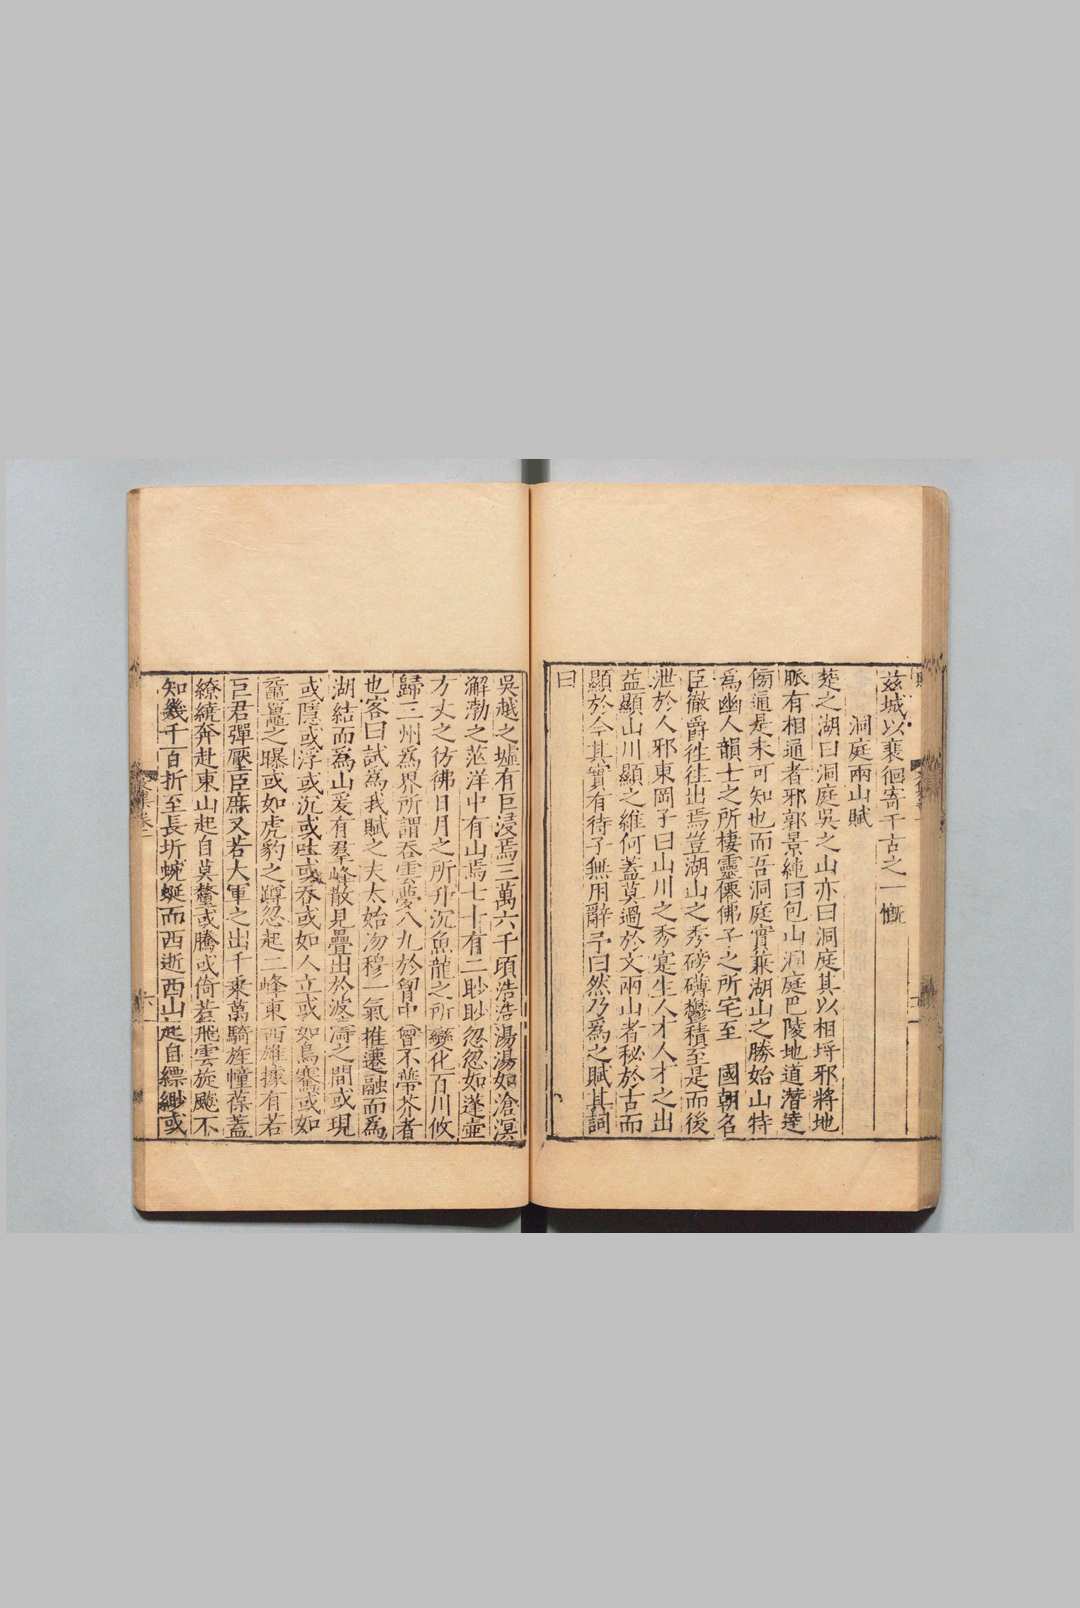 茲城以裵徊寄千古之一慨
洞庭兩山賦
楚之湖曰洞庭吳之山亦曰洞庭其以相埒邪將地
脈有相通者邪郭景純曰包山洞庭巴陵地道潛逹
傍通是未可知也而吾洞庭實兼湖山之勝始山特
爲幽人韻士之所棲靈僊佛子之所宅至 國朝名
臣徹爵徃徃出焉豈湖山之秀磅礴鬱積至是而後
泄於人邪東岡子曰山川之秀寔生人才人才之出
益顯山川顯之維何蓋莫過於文兩山者秘於古而
顯於今其實有待子無用辭予曰然乃爲之賦其詞
曰
吳越之墟有巨浸焉三萬六千頃浩浩湯湯如滄溟
澥渤之茫洋中有山焉七十有二眇眇忽忽如蓬壺
方丈之彷彿日月之所升沉魚龍之所變化百川攸
歸三州爲界所謂吞雲夢八九於胷中曾不蔕芥者
也客曰試爲我賦之夫太始沕穆一氣推遷融而爲
湖結而爲山爰有羣峰散見疊出於波濤之間或現
或隱或浮或沉或吐或吞或如人立或如鳥騫或如
黿鼉之曝或如虎豹之蹲忽起二峰東西雄據有若
巨君彈壓臣庶又若大軍之出千乘萬騎旌幢葆蓋
繚繞奔赴東山起自莫釐或騰或倚若飛雲旋飈不
知幾千百折至長圻蜿蜒而西逝西山起自縹緲或